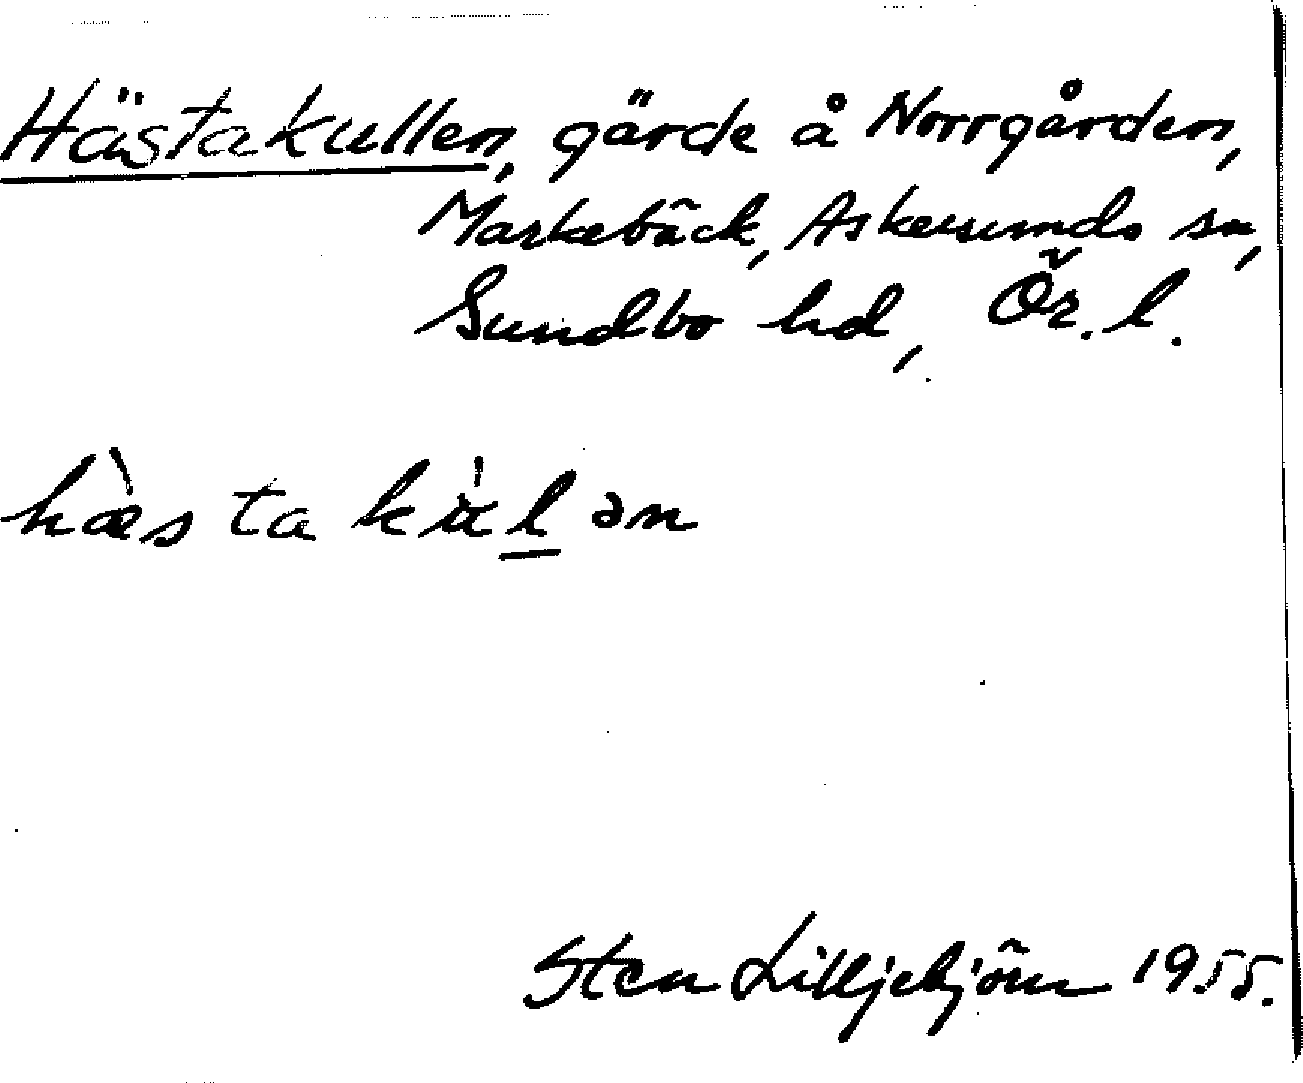 Hästakullen, gärde å Norrgården,
Markebäck, Askersunds sn,
Sundbo hd, Ör. l.
hæ̀sta kùlən
Sten Lilljebjörn 1955.